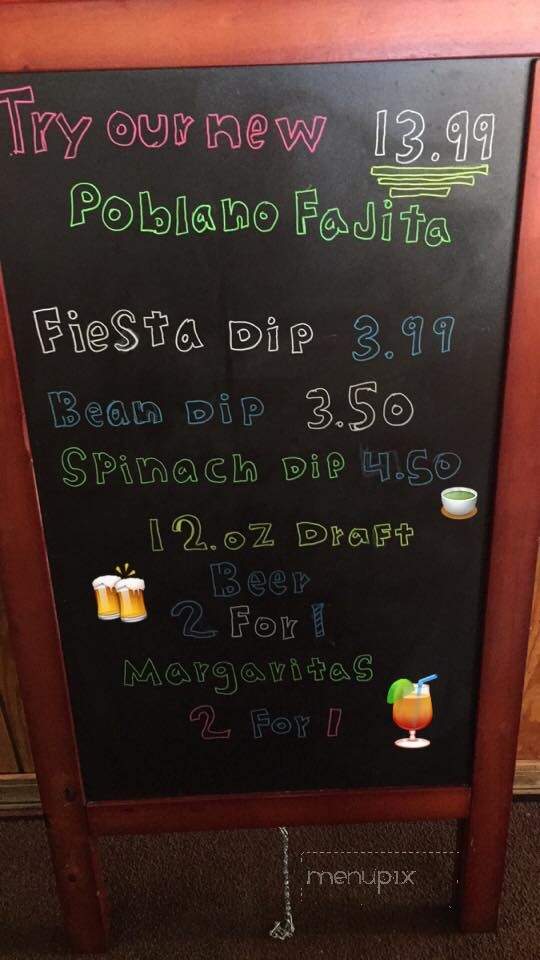 Try our new 13.99
Poblano Fajita
Fiesta Dip 3.99
Bean Dip 3.50
Spinach Dip 4.50
12.oz Draft
Beer
2 For 1
Margaritas
2 For 1
menupix